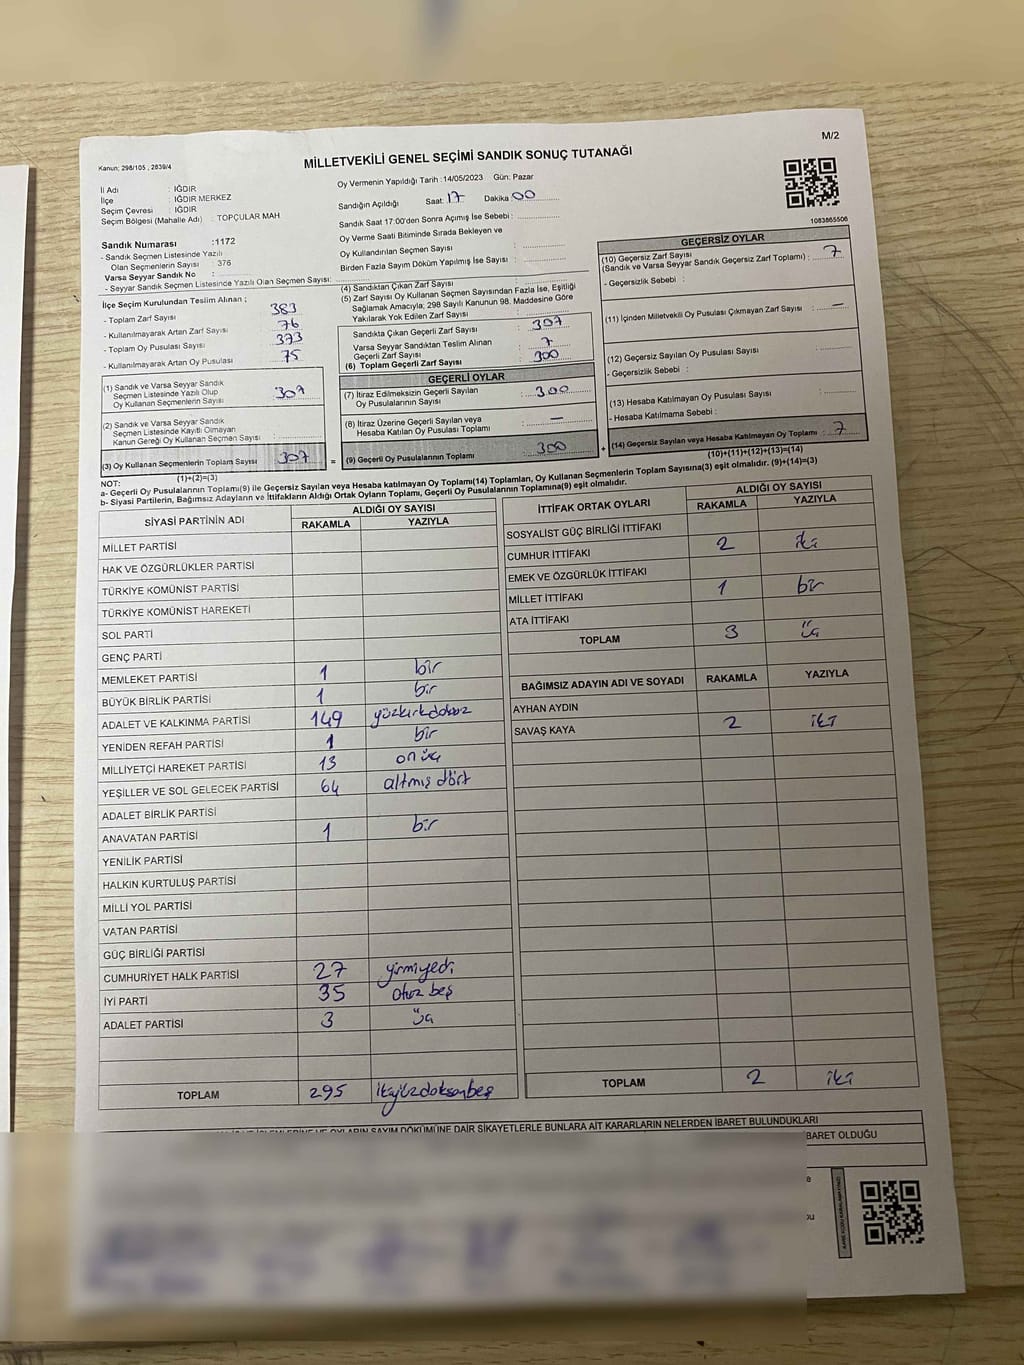 M/2
Kanun: 298/105 , 2839/4
MİLLETVEKİLİ GENEL SEÇİMİ SANDIK SONUÇ TUTANAĞI
İl Adı : IĞDIR
İlçe : IĞDIR MERKEZ
Seçim Çevresi : IĞDIR
Seçim Bölgesi (Mahalle Adı) : TOPÇULAR MAH
Sandık Numarası :1172
- Sandık Seçmen Listesinde Yazılı
Olan Seçmenlerin Sayısı : 376
Varsa Seyyar Sandık No :
- Seyyar Sandık Seçmen Listesinde Yazılı Olan Seçmen Sayısı:
Oy Vermenin Yapıldığı Tarih :14/05/2023 Gün: Pazar
Sandığın Açıldığı Saat: 17 Dakika 00
Sandık Saat 17:00'den Sonra Açımış İse Sebebi :
Oy Verme Saati Bitiminde Sırada Bekleyen ve
Oy Kullandırılan Seçmen Sayısı :
Birden Fazla Sayım Döküm Yapılmış İse Sayısı :
1083865506
İlçe Seçim Kurulundan Teslim Alınan ;
- Toplam Zarf Sayısı : 383
- Kullanılmayarak Artan Zarf Sayısı : 76
- Toplam Oy Pusulası Sayısı : 373
- Kullanılmayarak Artan Oy Pusulası : 75
(1) Sandık ve Varsa Seyyar Sandık
Seçmen Listesinde Yazılı Olup
Oy Kullanan Seçmenlerin Sayısı : 307
(2) Sandık ve Varsa Seyyar Sandık
Seçmen Listesinde Kayıtlı Olmayan
Kanun Gereği Oy Kullanan Seçmen Sayısı :
(3) Oy Kullanan Seçmenlerin Toplam Sayısı 307
(1)+(2)=(3)
(4) Sandıktan Çıkan Zarf Sayısı :
(5) Zarf Sayısı Oy Kullanan Seçmen Sayısından Fazla İse, Eşitliği
Sağlamak Amacıyla; 298 Sayılı Kanunun 98. Maddesine Göre
Yakılarak Yok Edilen Zarf Sayısı :
Sandıkta Çıkan Geçerli Zarf Sayısı : 307
Varsa Seyyar Sandıktan Teslim Alınan
Geçerli Zarf Sayısı : 7
(6) Toplam Geçerli Zarf Sayısı : 300
GEÇERLİ OYLAR
(7) İtiraz Edilmeksizin Geçerli Sayılan
Oy Pusulalarının Sayısı : 300
(8) İtiraz Üzerine Geçerli Sayılan veya
Hesaba Katılan Oy Pusulası Toplamı : —
= (9) Geçerli Oy Pusulalarının Toplamı : 300
GEÇERSİZ OYLAR
(10) Geçersiz Zarf Sayısı
(Sandık ve Varsa Seyyar Sandık Geçersiz Zarf Toplamı) : 7
- Geçersizlik Sebebi :
(11) İçinden Milletvekili Oy Pusulası Çıkmayan Zarf Sayısı : —
(12) Geçersiz Sayılan Oy Pusulası Sayısı :
- Geçersizlik Sebebi :
(13) Hesaba Katılmayan Oy Pusulası Sayısı :
- Hesaba Katılmama Sebebi :
+ (14) Geçersiz Sayılan veya Hesaba Katılmayan Oy Toplamı : 7
(10)+(11)+(12)+(13)=(14)
NOT:
a- Geçerli Oy Pusulalarının Toplamı(9) ile Geçersiz Sayılan veya Hesaba katılmayan Oy Toplamı(14) Toplamları, Oy Kullanan Seçmenlerin Toplam Sayısına(3) eşit olmalıdır. (9)+(14)=(3)
b- Siyasi Partilerin, Bağımsız Adayların ve İttifakların Aldığı Ortak Oyların Toplamı, Geçerli Oy Pusulalarının Toplamına(9) eşit olmalıdır.
SİYASİ PARTİNİN ADI ALDIĞI OY SAYISI
RAKAMLA YAZIYLA
MİLLET PARTİSİ
HAK VE ÖZGÜRLÜKLER PARTİSİ
TÜRKİYE KOMÜNİST PARTİSİ
TÜRKİYE KOMÜNİST HAREKETİ
SOL PARTİ
GENÇ PARTİ
MEMLEKET PARTİSİ 1 bir
BÜYÜK BİRLİK PARTİSİ 1 bir
ADALET VE KALKINMA PARTİSİ 149 yüzkırkdokuz
YENİDEN REFAH PARTİSİ 1 bir
MİLLİYETÇİ HAREKET PARTİSİ 13 on üç
YEŞİLLER VE SOL GELECEK PARTİSİ 64 altmış dört
ADALET BİRLİK PARTİSİ
ANAVATAN PARTİSİ 1 bir
YENİLİK PARTİSİ
HALKIN KURTULUŞ PARTİSİ
MİLLİ YOL PARTİSİ
VATAN PARTİSİ
GÜÇ BİRLİĞİ PARTİSİ
CUMHURİYET HALK PARTİSİ 27 yirmiyedi
İYİ PARTİ 35 otuz beş
ADALET PARTİSİ 3 üç
TOPLAM 295 ikiyüzdoksanbeş
İTTİFAK ORTAK OYLARI ALDIĞI OY SAYISI
RAKAMLA YAZIYLA
SOSYALİST GÜÇ BİRLİĞİ İTTİFAKI
CUMHUR İTTİFAKI 2 iki
EMEK VE ÖZGÜRLÜK İTTİFAKI
MİLLET İTTİFAKI 1 bir
ATA İTTİFAKI
TOPLAM 3 üç
BAĞIMSIZ ADAYIN ADI VE SOYADI RAKAMLA YAZIYLA
AYHAN AYDIN
SAVAŞ KAYA 2 iki
TOPLAM 2 iki
OYLARIN SAYIM DÖKÜMÜNE DAİR ŞİKAYETLERLE BUNLARA AİT KARARLARIN NELERDEN İBARET BULUNDUKLARI
BARET OLDUĞU